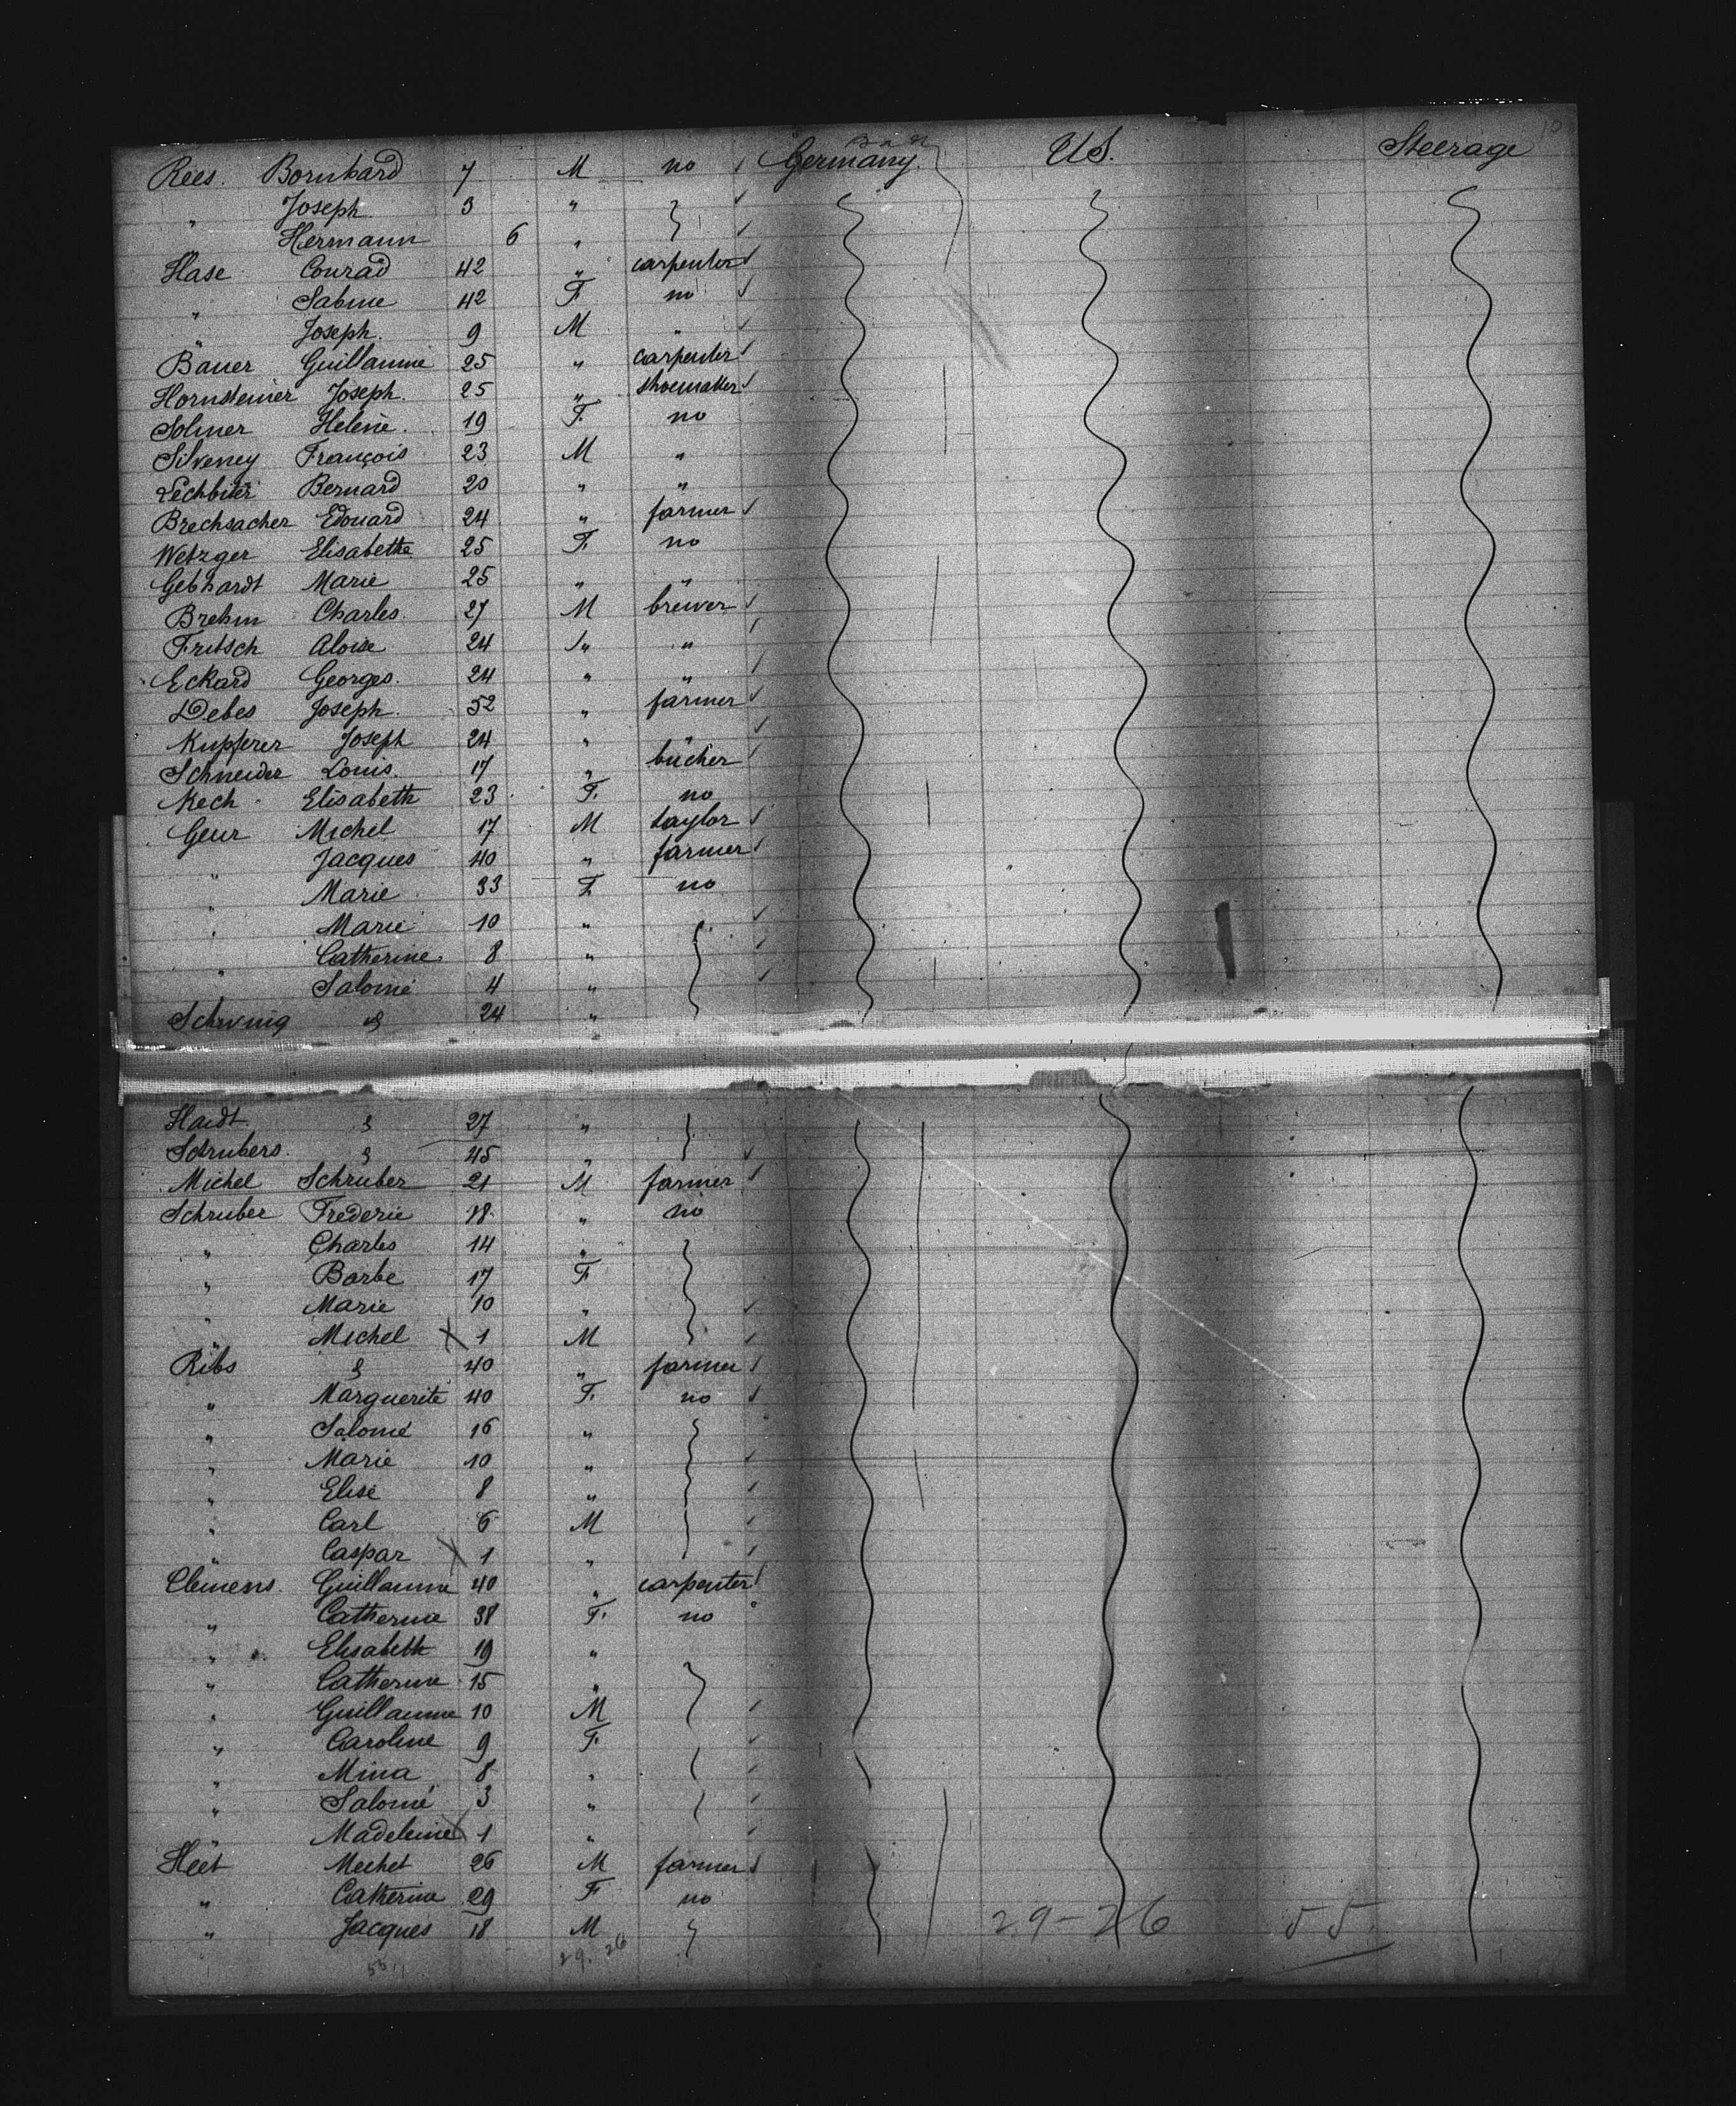 Rees. Bornhard 7 M no Germany. U.S. Steerage
" Joseph 3 "
Hermann 6 "
Hase Conrad 42 " carpenter
" Sabine 42 F. no
" Joseph. 9 M "
Bauer Guillaume 25 " carpenter
Hornsteiner Joseph. 25 " shoemaker
Solmer Helène. 19 F. no
Silveney François 23 M "
Lechbiter Bernard 20 " "
Brechsacher Edouard 24 " farmer
Wetzger Elisabethe 25 F. no
Gebhardt Marie 25 " "
Brehm Charles. 27 M brewer
Fritsch Aloise 24 " "
Eckard Georges. 24 " "
Debes Joseph. 52 " farmer
Kupferer Joseph 24 " "
Schneider Louis. 17 " bucher
Kech Elisabeth 23 F. no
Geur Michel 17 M taylor
" Jacques 40 " farmer
" Marie 33 F. no
" Marie 10 "
Catherine 8 "
" Salomé 4 "
24 "
Haidt. 27 "
Schrubers. 45 "
Michel Schruber 21 M farmer
Schruber Frederic 18 " no
" Charles 14 "
" Barbe 17 F.
" Marie 10 "
" Michel X 1 M
Ribs 40 " farmer
" Marguerite 40 F. no
" Salomé 16 "
" Marie 10 "
" Elise 8 "
" Carl 6 M
" Caspar X 1 "
Clemens. Guillaume 40 " carpenter
" Catherine 38 F. no
" Elisabeth 19 "
" Catherine 15 "
" Guillaume 10 M
" Caroline 9 F.
" Mina 8 "
" Salomé 3 "
" Madeleine X 1 "
Heet Michel 26 M farmer
" Catherine 29 F no
" Jacques 18 M 29-26 55
55 29.26